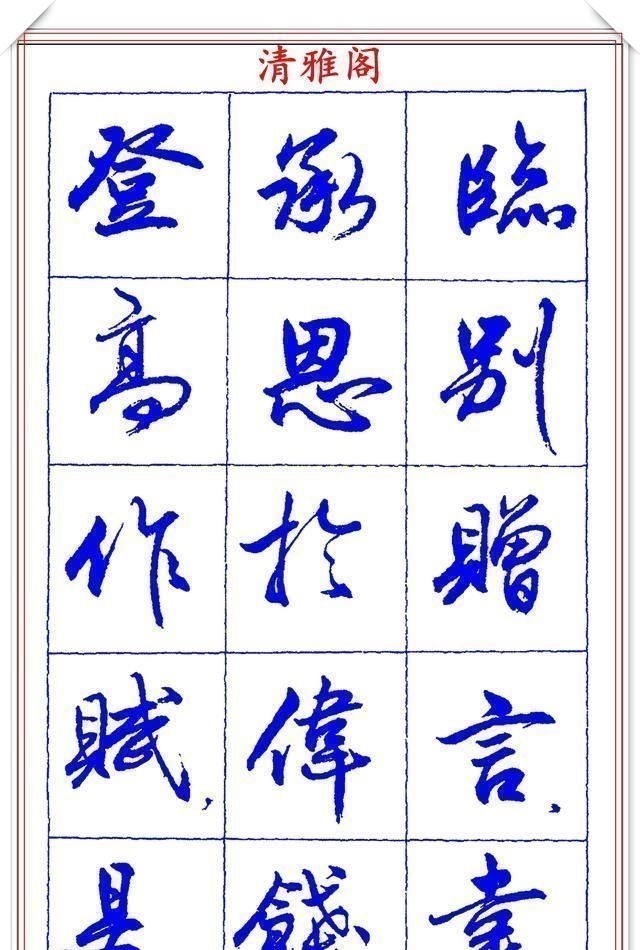 清雅阁
臨別贈言，幸
承恩於偉餞
登高作賦，是